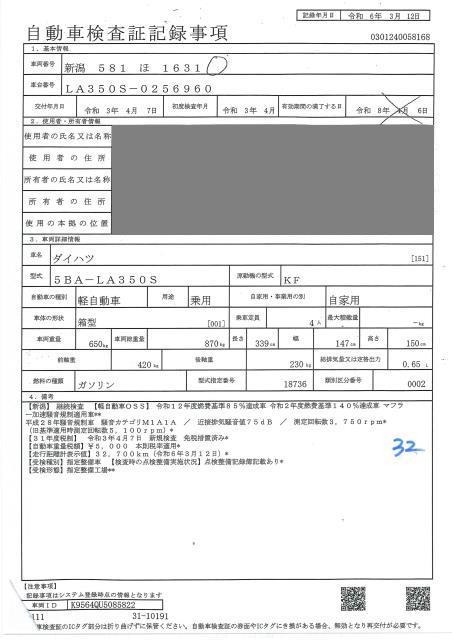 記録年月日 令和 6年 3月 12日
自動車検査証記録事項
0301240058168
1. 基本情報
車両番号 新潟 581 ほ 1631
車台番号 LA350S-0256960
交付年月日 令和 3年 4月 7日 初度検査年月 令和 3年 4月 有効期間の満了する日 令和 8年 4月 6日
2. 使用者・所有者情報
使用者の氏名又は名称
使用者の住所
所有者の氏名又は名称
所有者の住所
使用の本拠の位置
3. 車両詳細情報
車名 ダイハツ [151]
型式 5BA-LA350S 原動機の型式 KF
自動車の種別 軽自動車 用途 乗用 自家用・事業用の別 自家用
車体の形状 箱型 [001] 乗車定員 4人 最大積載量 -kg
車両重量 650kg 車両総重量 870kg 長さ 339cm 幅 147cm 高さ 150cm
前軸重 420kg 後軸重 230kg 総排気量又は定格出力 0.65 L
燃料の種類 ガソリン 型式指定番号 18736 類別区分番号 0002
4. 備考
【新潟】 継続検査 【軽自動車OSS】 令和12年度燃費基準85%達成車 令和2年度燃費基準140%達成車 マフラ
ー加速騒音規制適用車**
平成28年騒音規制車 騒音カテゴリM1A1A / 近接排気騒音値75dB / 測定回転数3,750rpm*
(旧基準適用時測定回転数5,100rpm)*
【31年度税制】 令和3年4月7日 新規検査 免税措置済み*
【自動車重量税額】¥5,000 本則税率適用*
【走行距離計表示値】32,700km(令和6年3月12日)*
【受検種別】指定整備車 【検査時の点検整備実施状況】点検整備記録簿記載あり*
【受検形態】指定整備工場**
32
【注意事項】
記録事項はシステム登録時点の情報となります
車両ID K9564QU5085822
111 31-10191
車検査証のICタグ部分は折り曲げずに保管ください。自動車検査証の券面やICタグに不具合がある場合、無効となり再交付が必要です。